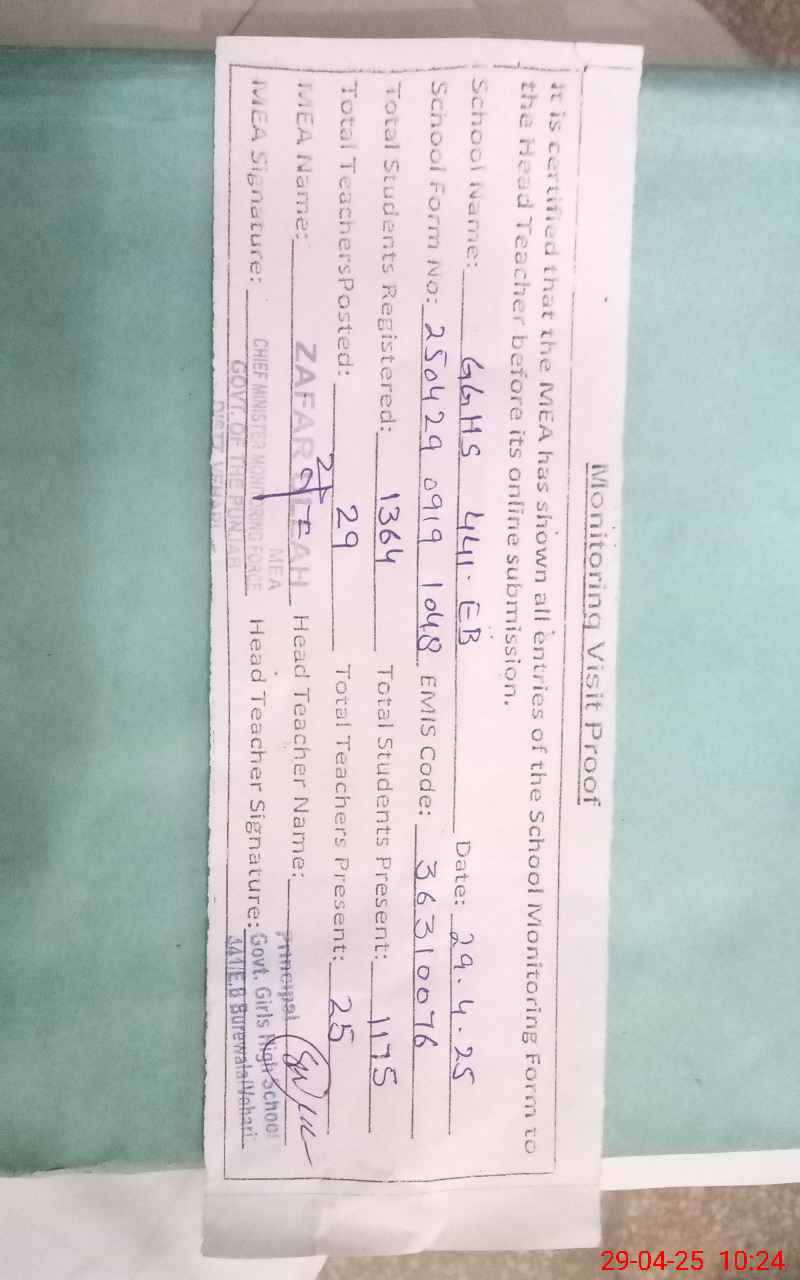 Monitoring Visit Proof
It is certified that the MEA has shown all entries of the School Monitoring Form to
the Head Teacher before its online submission.
School Name: GGHS 441·EB Date: 29.4.25
School Form No: 250429 0919 1048 EMIS Code: 36310076
Total Students Registered: 1364 Total Students Present: 1175
Total TeachersPosted: 29 Total Teachers Present: 25
MEA Name: ZAFAR Head Teacher Name:
MEA
Principal
MEA Signature: CHIEF MINISTER MONITORING FORCE Head Teacher Signature: Govt. Girls High School
GOVT. OF THE PUNJAB 441/E.B Burewala(Vehari)
DISTT. VEHARI
29-04-25 10:24